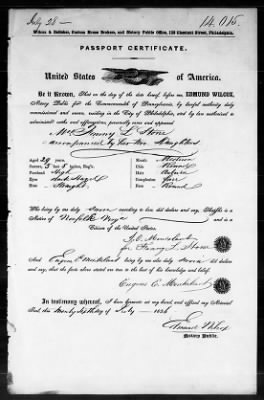 July 26 — 14.015.
Wilcox & Bollshan, Custom House Brokers, and Notary Public Office, 120 Chestnut Street, Philadelphia.
PASSPORT CERTIFICATE.
United States of America.
Be it Known, That on the day of the date hereof, before me, EDMUND WILCOX,
Notary Public for the Commonwealth of Pennsylvania, by lawful authority duly
commissioned and sworn, residing in the City of Philadelphia, and by law authorized to
administer oaths and affirmations, personally came and appeared
Mrs Fanny L Stone
accompanied by her two daughters
Aged 29 years Mouth Medium
Stature 5 feet 8 inches, Eng's. Chin Round
Forehead High Hair Auburn
Eyes Dark Hazel Complexion Fair
Nose Straight Face Round
Who being by me duly sworn according to law did declare and say, That She is a
Native of Norfolk Virga and
Citizen of the United States.
for Fanny L. Stone
And being by me also duly sworn did declare and
say, that the facts above stated are true to the best of his knowledge and belief.
In testimony whereof, I have hereunto set my hand and affixed my Notarial
Seal, this twenty sixth day of July 1856
Edmund Wilcox
Notary Public.